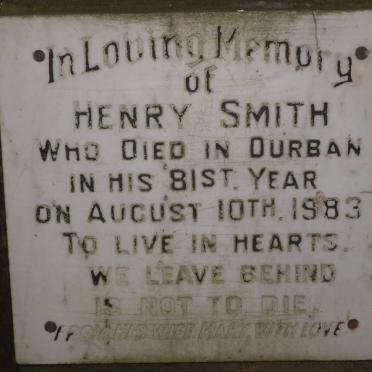 In Loving Memory
of
HENRY SMITH
WHO DIED IN DURBAN
IN HIS 81ST. YEAR
ON AUGUST 10TH. 1983
TO LIVE IN HEARTS
WE LEAVE BEHIND
IS NOT TO DIE.
FROM HIS WIFE MARY, WITH LOVE